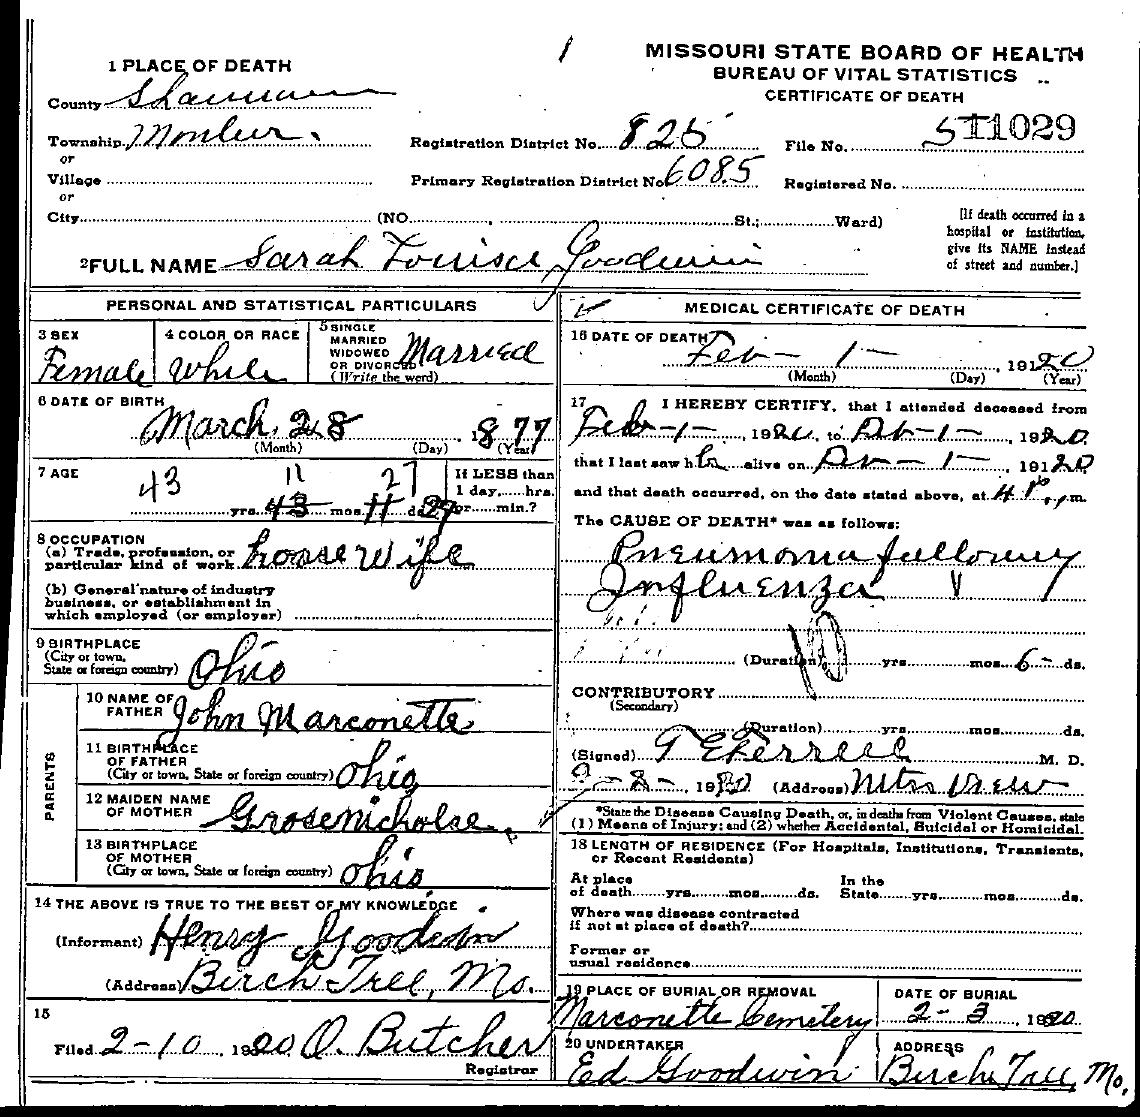 MISSOURI STATE BOARD OF HEALTH
BUREAU OF VITAL STATISTICS
CERTIFICATE OF DEATH
1 PLACE OF DEATH
County Shannon
Township Montier.
or
Village
or
City
Registration District No. 825
Primary Registration District No. 6085
File No. 11029
Registered No.
(NO. , St.; Ward)
[If death occurred in a
hospital or institution,
give its NAME instead
of street and number.]
2 FULL NAME Sarah Louisa Goodwin
PERSONAL AND STATISTICAL PARTICULARS
3 SEX
Female
4 COLOR OR RACE
White
5 SINGLE
MARRIED
WIDOWED
OR DIVORCED
(Write the word)
Married
6 DATE OF BIRTH
March, 28, 1877
(Month) (Day) (Year)
7 AGE
43 11 27
yrs. 43 mos. 11 ds. 27
If LESS than
1 day, hrs.
or min.?
8 OCCUPATION
(a) Trade, profession, or
particular kind of work house wife
(b) General nature of industry
business, or establishment in
which employed (or employer)
9 BIRTHPLACE
(City or town,
State or foreign country) Ohio
PARENTS
10 NAME OF
FATHER John Marconette
11 BIRTHPLACE
OF FATHER
(City or town, State or foreign country) Ohio
12 MAIDEN NAME
OF MOTHER Grosenicholse
13 BIRTHPLACE
OF MOTHER
(City or town, State or foreign country) Ohio
14 THE ABOVE IS TRUE TO THE BEST OF MY KNOWLEDGE
(Informant) Henry Goodwin
(Address) Birch Tree, Mo.
15
Filed 2-10, 1920 O. Butcher
Registrar
MEDICAL CERTIFICATE OF DEATH
16 DATE OF DEATH
Feb - 1 - , 1920
(Month) (Day) (Year)
17 I HEREBY CERTIFY, that I attended deceased from
Feb - 1 - , 1920, to Feb - 1 - , 1920
that I last saw h alive on Feb - 1 - , 1920
and that death occurred, on the date stated above, at 4 P. m.
The CAUSE OF DEATH* was as follows:
Pneumonia following
Influenza
10
(Duration) yrs. mos. 6 - ds.
CONTRIBUTORY
(Secondary)
(Duration) yrs. mos. ds.
(Signed) M. D.
2 - 8 - 1920 (Address) Mtn View
*State the Disease Causing Death, or, in deaths from Violent Causes, state
(1) Means of Injury; and (2) whether Accidental, Suicidal or Homicidal.
18 LENGTH OF RESIDENCE (For Hospitals, Institutions, Transients,
or Recent Residents)
At place
of death yrs. mos. ds.
In the
State yrs. mos. ds.
Where was disease contracted
if not at place of death?
Former or
usual residence
19 PLACE OF BURIAL OR REMOVAL
Marconette Cemetery
DATE OF BURIAL
2 - 3 1920
20 UNDERTAKER
Ed Goodwin
ADDRESS
Birch Tree, Mo.